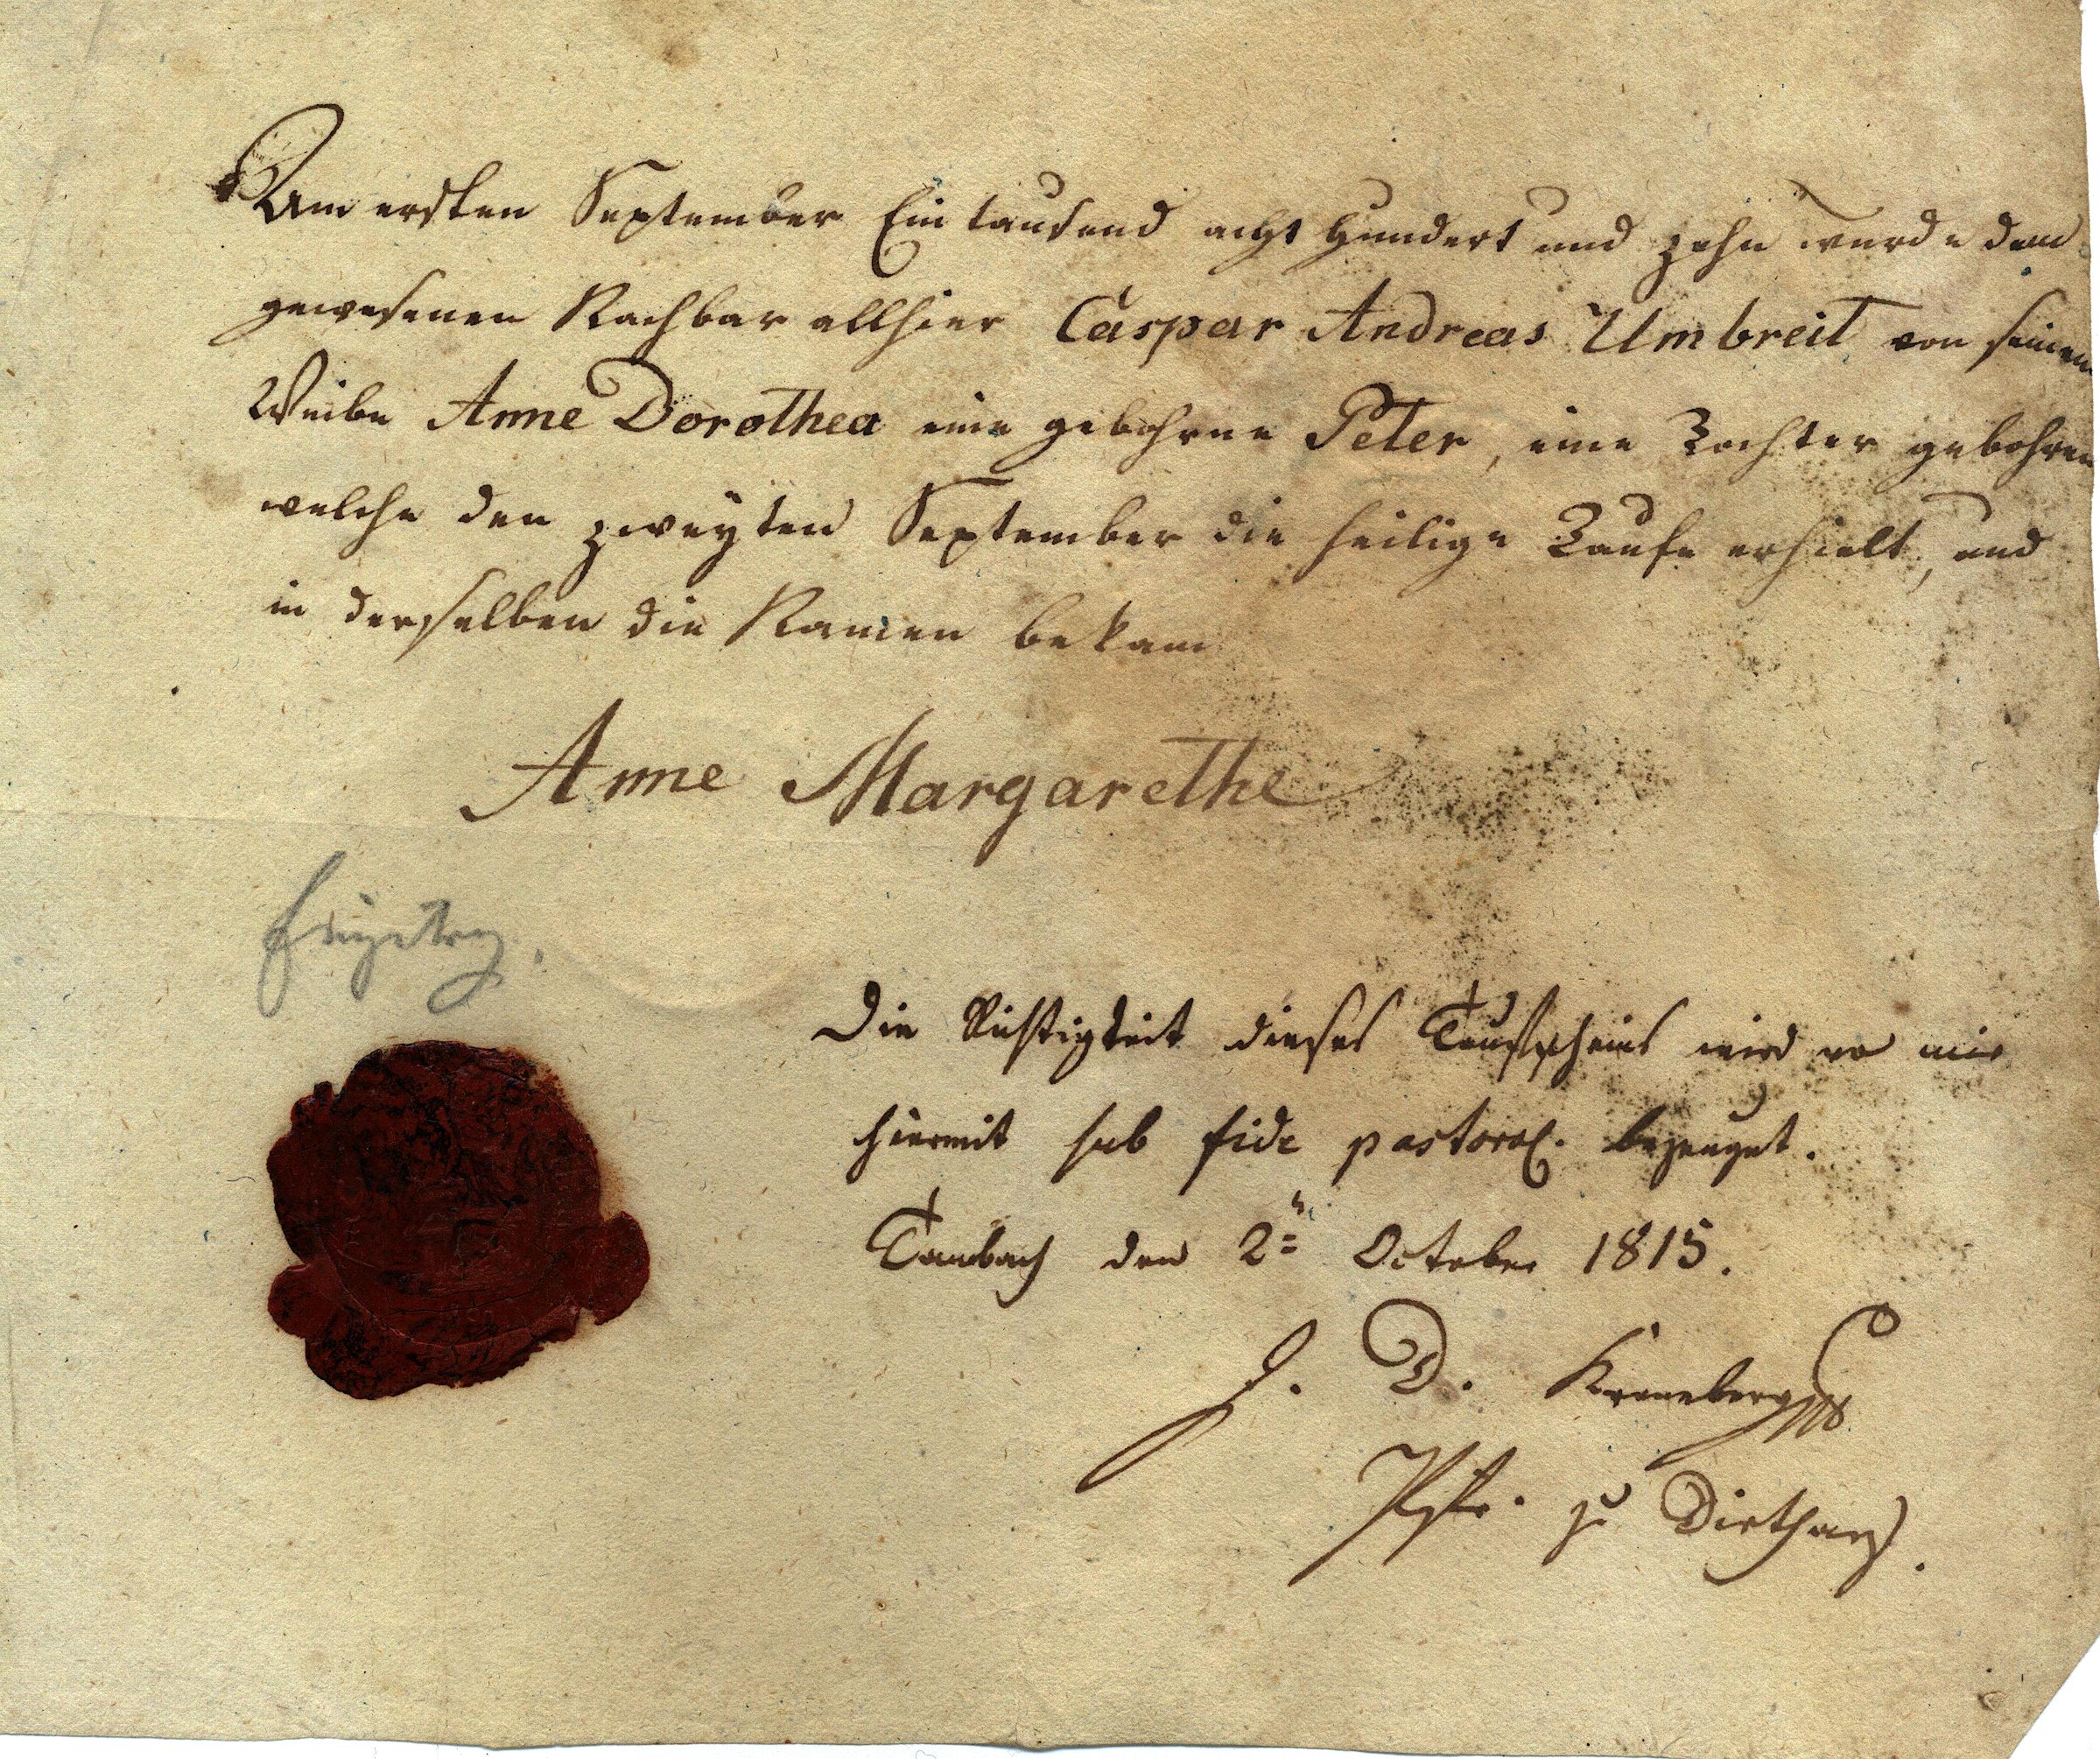 Am ersten September Ein tausend acht hundert und zehn wurde dem
gewesenen Nachbar allhier Caspar Andreas Umbreit von seinem
Weibe Anne Dorothea eine gebohrne Peter, eine Tochter gebohren
welche den zweyten September die heilige Taufe erhielt, und
in derselben die Namen bekam
Anne Margarethe
Eingetrag.
Die Richtigkeit dieses Taufscheins wird von mir
hiermit sub fide pastoral. bezeuget.
Tambach den 2ten October 1815.
J. D. Kroneberg
Pfr. zu Dietharz.